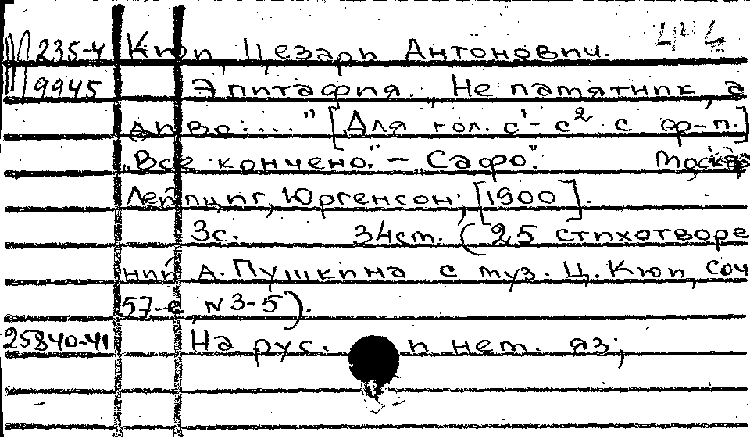 М 235-4 Кюи, Цезарь Антонович.
9945 Эпитафия. „Не памятник, а
диво:..." [Для гол. c¹-c² с ф-п.]
„Все кончено." – „Сафо". Москва
Лейпциг, Юргенсон, [1900].
3с. 34см. (25 стихотворе
ний А. Пушкина с муз. Ц. Кюи, соч
57-е, N 3-5).
25840-41 На рус. и нем. яз;